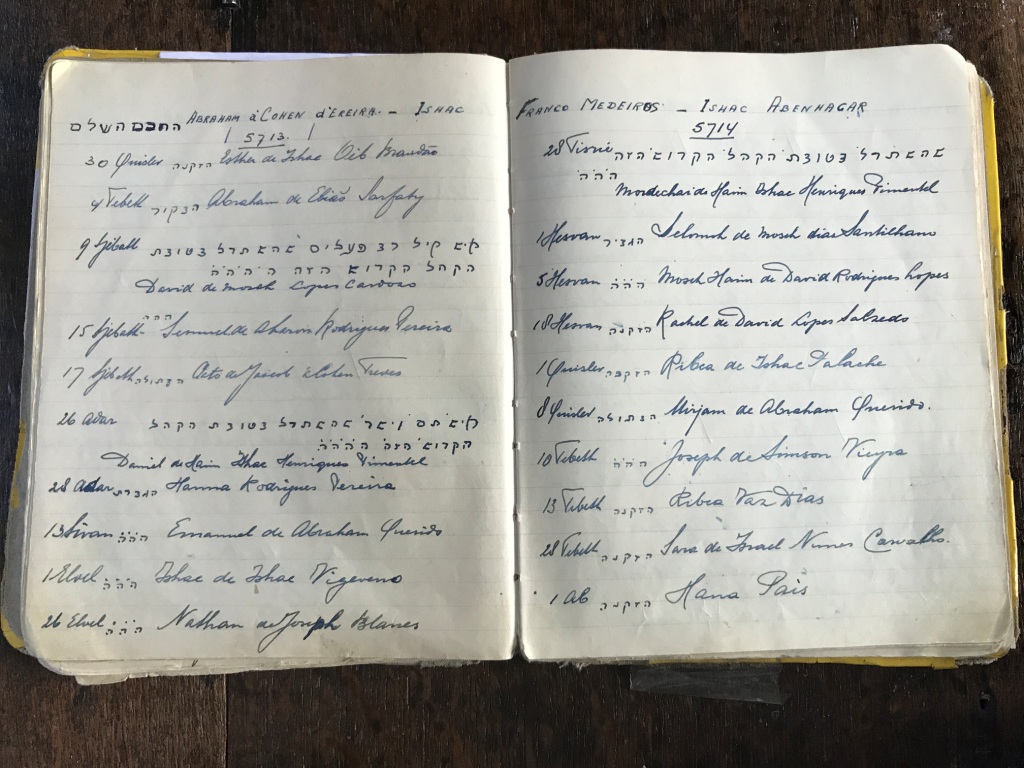 החכם השלם ABRAHAM à COHEN d'EREIRA. — ISHAC
5713.
30 Quisler הזקנה Esther de Ishac Oëb Brandão
4 Tebeth הבקיר Abraham de Eliäs Sarfaty
9 Sjebath איא קיל רב פעלים שהשתדל בטובת
הקהל הקדוש הזה ה'ה'ה'ה
David de Moseh Lopes Cardozo
15 Sjebath ההה Semuel de Aharon Rodrigues Pereira
17 Sjebath הבתולה de Jacob à Cohen Treves
26 Adar איא תם וישר שהשתדל בטובת הקהל
הקדוש הזה ה'ה'ה'ה
Daniel de Haim Ishac Henriques Pimentel
28 Adar הגברת Hanna Rodrigues Pereira
13 Sivan ההה Emanuel de Abraham Querido
1 Elvel ההה Ishac de Ishac Vigeveno
26 Elvel ההה Nathan de Joseph Blanes
FRANCO MEDEIROS — ISHAC ABENHACAR
5714
28 Tisrie שהשתדל בטובת הקהל הקדוש הזה
ההה
Mordechai de Haim Ishac Henriques Pimentel
1 Hesvan הגביר Selomoh de Moseh dias Santilhano
5 Hesvan ההה Moseh Haim de David Rodrigues Lopes
18 Hesvan הזקנה Rachel de David Lopes Salzedo
1 Quisler הזקנה Ribca de Ishac Palache
8 Quisler הבתולה Mirjam de Abraham Querido.
10 Tebeth ההה Joseph de Simson Vieyra
13 Tebeth הזקנה Ribca Vaz Dias
28 Tebeth הזקנה Sara de Israel Nunes Carvalho.
1 AB הזקנה Hana Pais